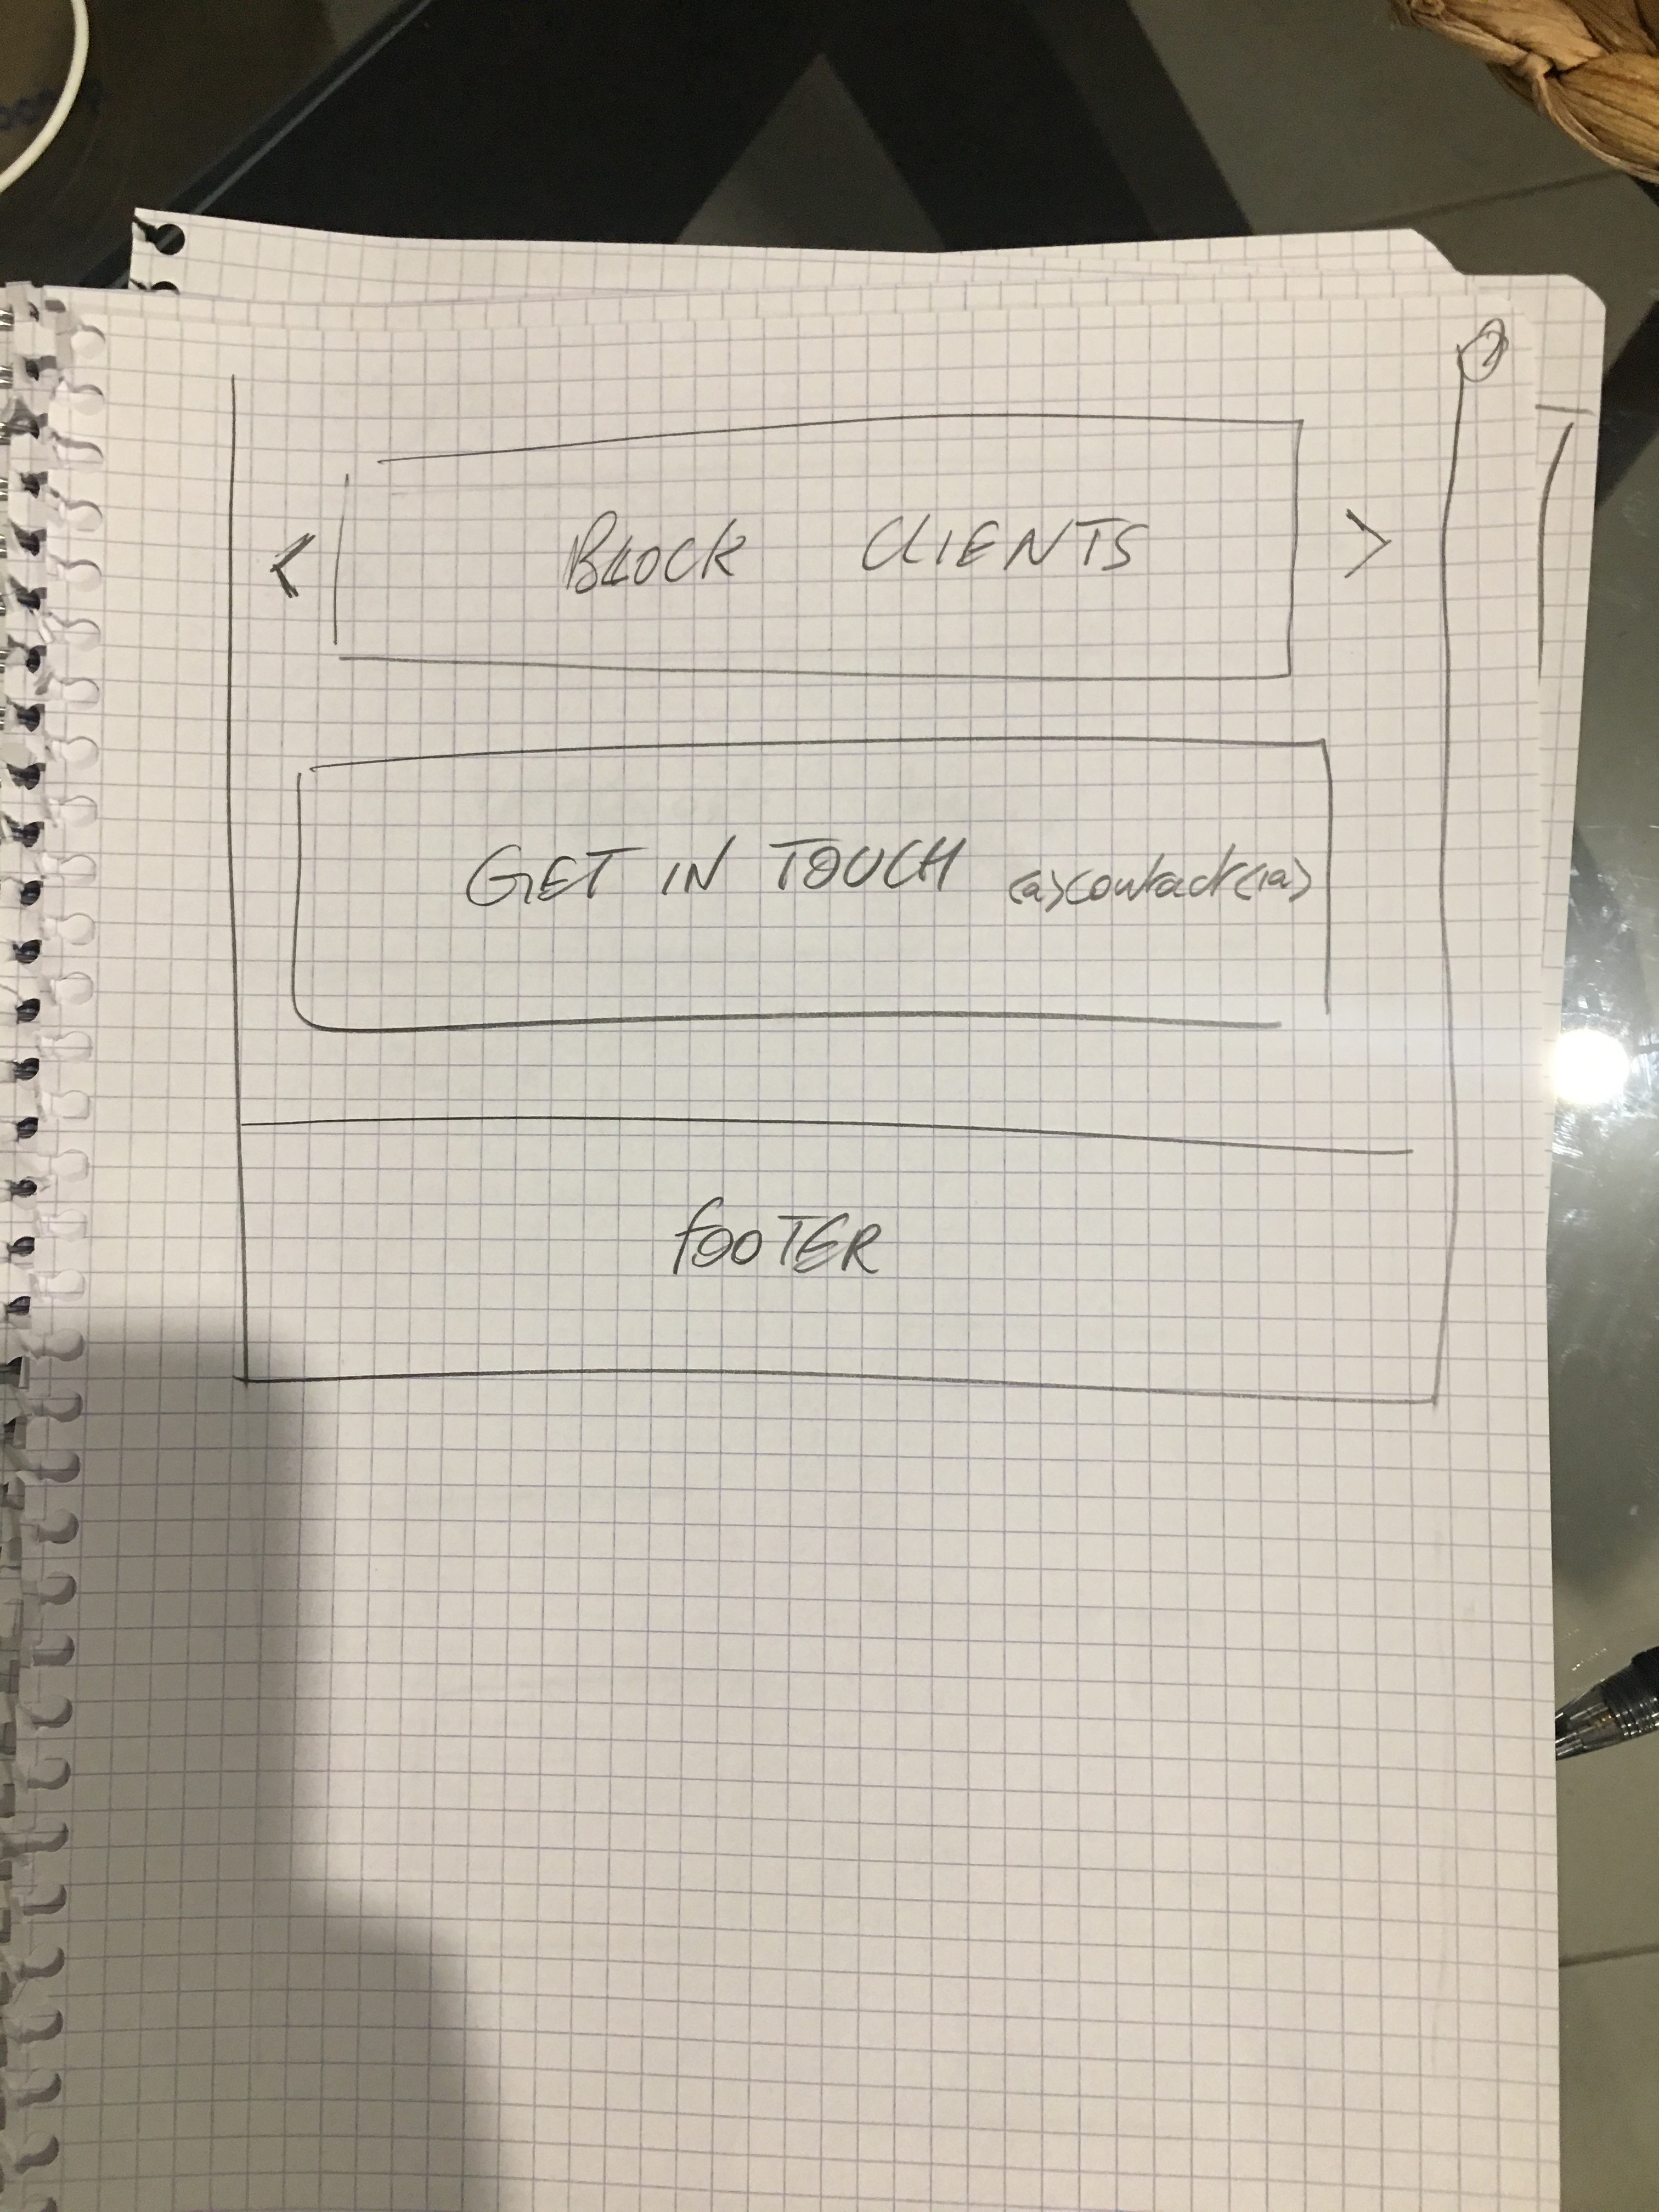 2
< BLOCK CLIENTS >
GET IN TOUCH <a>contact</a>
FOOTER